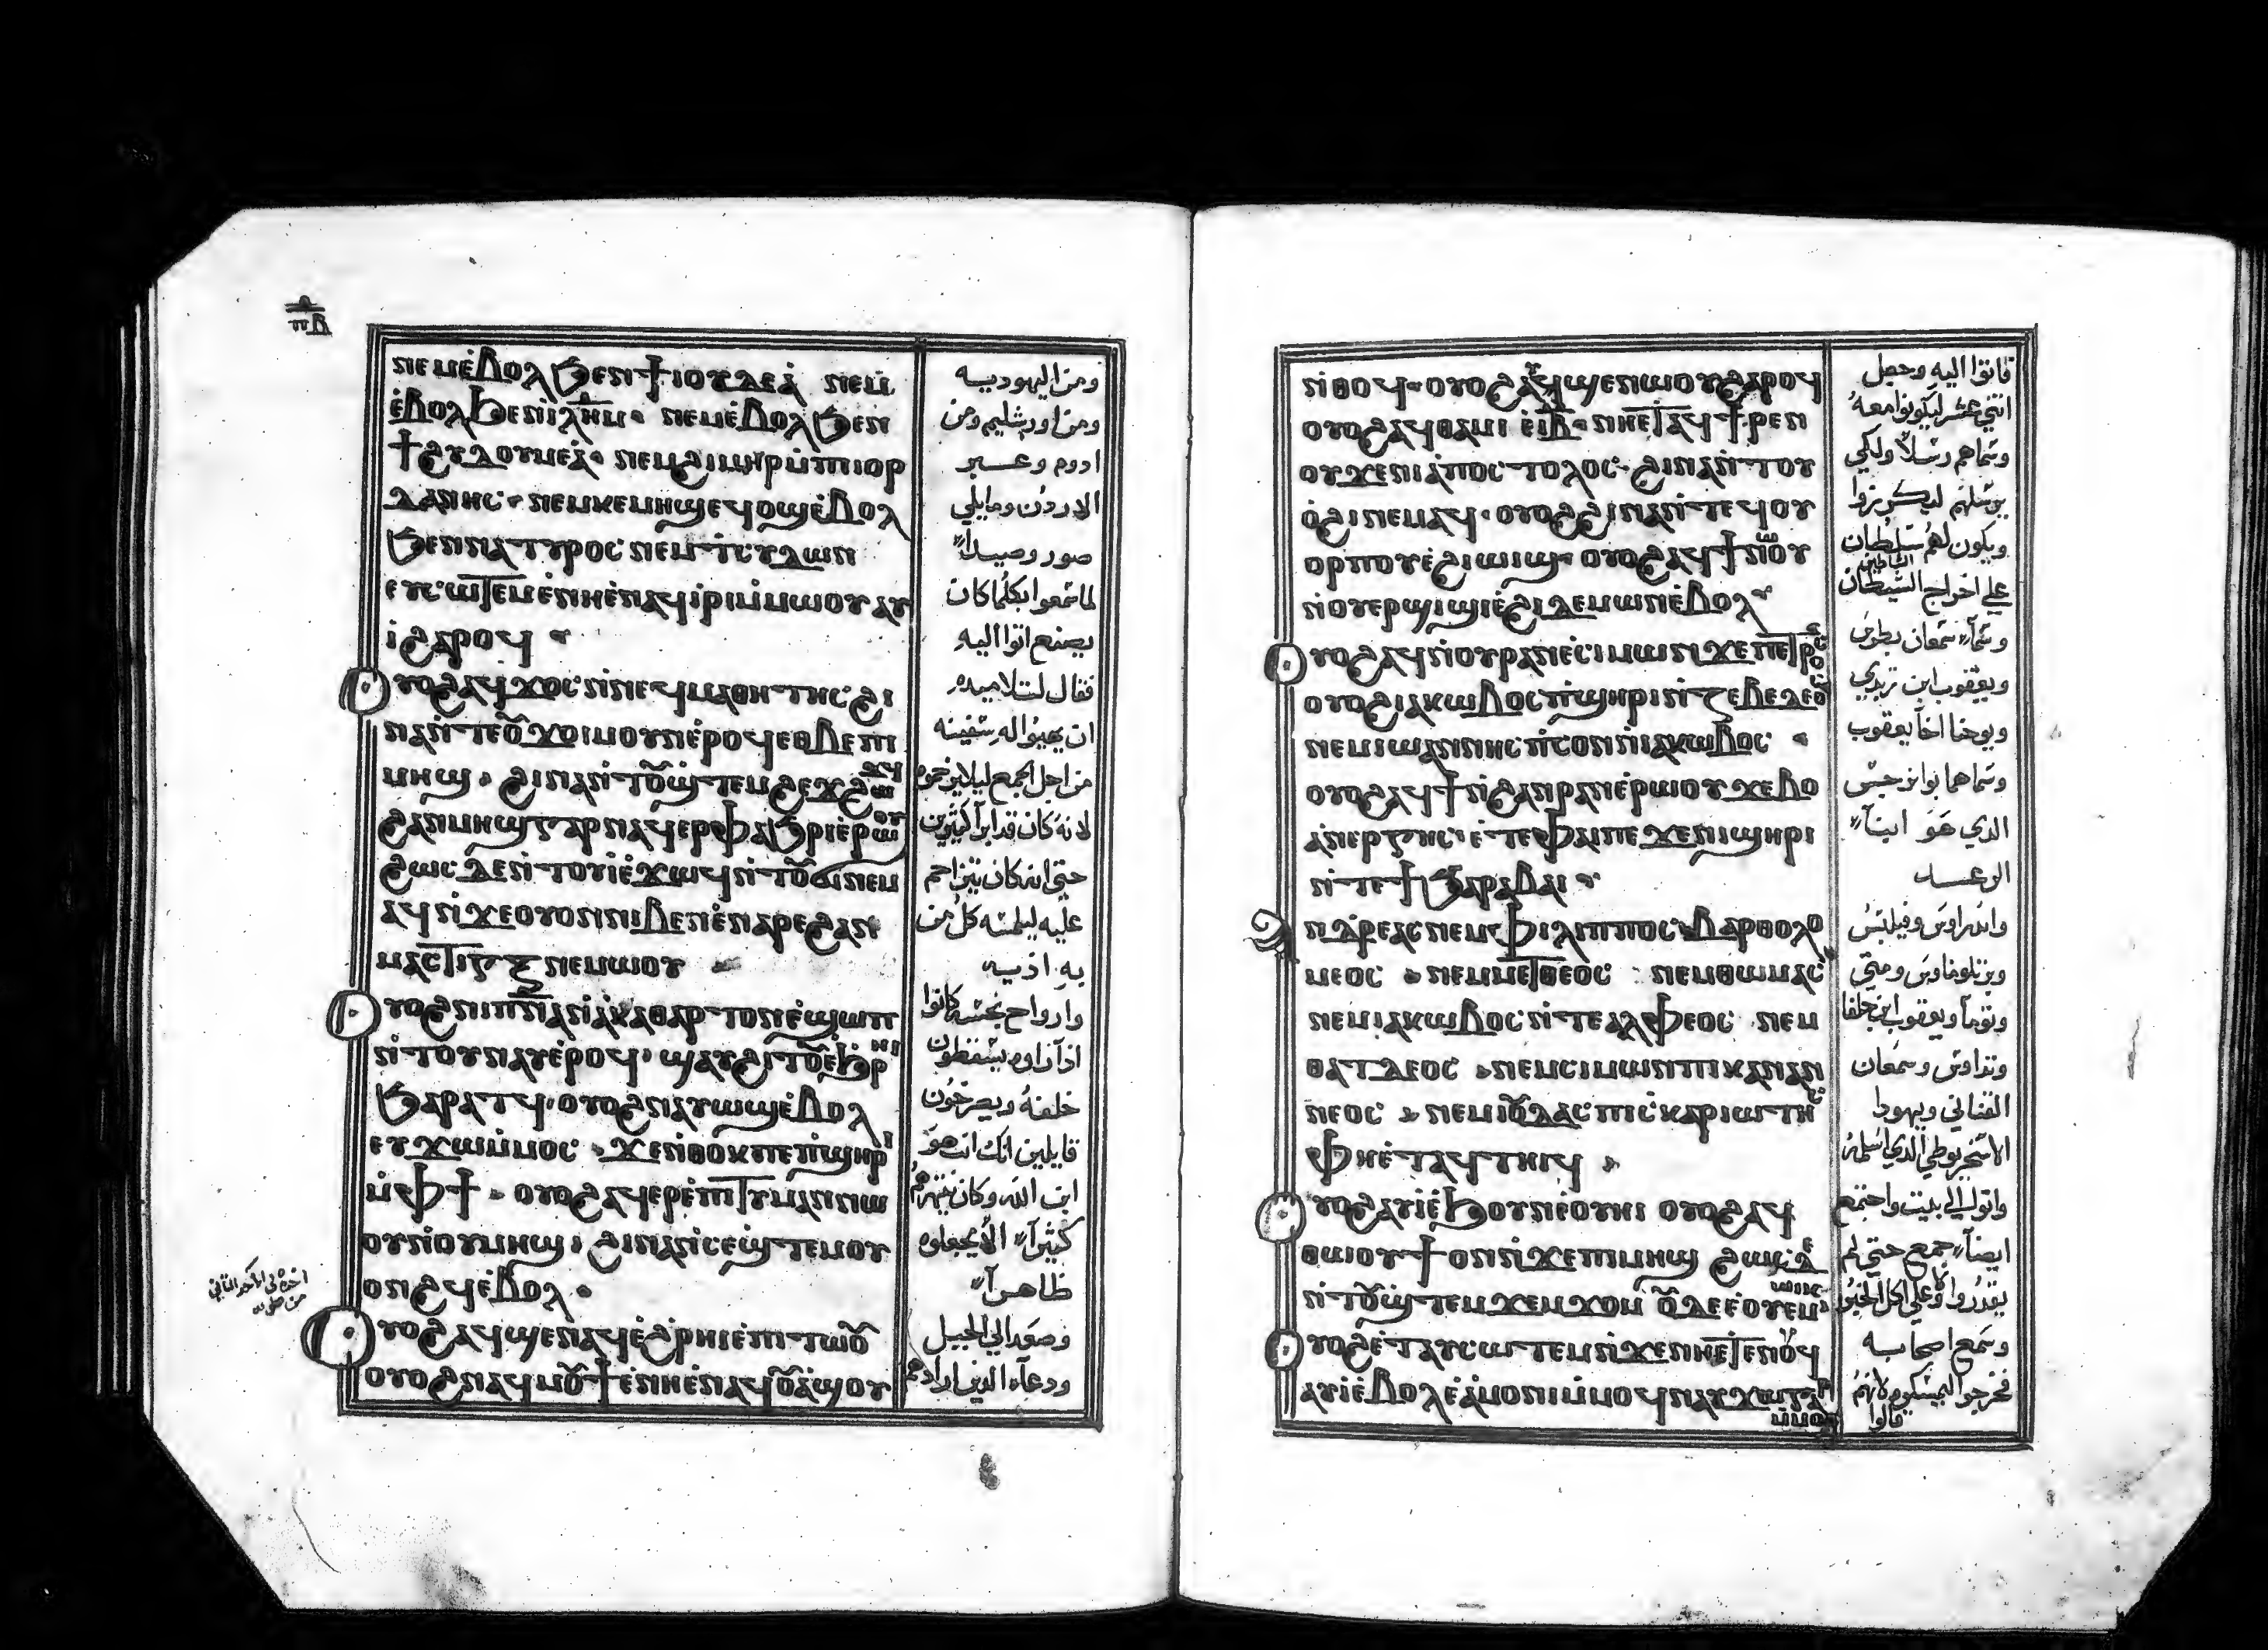 ⲛⲉⲙⲉ̀ⲃⲟⲗϧⲉⲛϯⲓⲟⲩⲇⲉⲁ̀ ⲛⲉⲙ
ⲉ̀ⲃⲟⲗϧⲉⲛⲓ̀ⲗ̅ⲏ̅ⲙ̅· ⲛⲉⲙⲉ̀ⲃⲟⲗϧⲉⲛ
ϯϩⲩⲇⲟⲩⲙⲉⲁ̀· ⲛⲉⲙϩⲓⲙⲏⲣⲙ̀ⲡⲓⲟⲣ
ⲇⲁⲛⲏⲥ· ⲛⲉⲙⲕⲉⲙⲏϣⲉϥⲟϣⲉ̀ⲃⲟⲗ
ϧⲉⲛⲛⲁⲧⲩⲣⲟⲥⲛⲉⲙⲧⲥⲩⲇⲱⲛ
ⲉⲩⲥⲱⲧⲉⲙⲉ̀ⲛⲏⲉ̀ⲛⲁϥⲓⲣⲓⲙ̀ⲙⲱⲟⲩⲁⲩ
ⲓ̀ϩⲁⲣⲟϥ
ⲟⲩⲟϩⲁϥϫⲟⲥⲛ̀ⲛⲉϥⲙⲁⲑⲏⲧⲏⲥϩⲓ
ⲛⲁⲛ̀ⲧⲉⲟⲩϫⲟⲓⲙⲟⲩⲛⲉ̀ⲣⲟϥⲉⲑⲃⲉⲡⲓ
ⲙⲏϣ· ϩⲓⲛⲁⲛ̀ⲧⲟⲩϣ̀ⲧⲉⲙϩⲉϫϩⲱϫϥ
ϩⲁⲛⲙⲏϣⲅⲁⲣⲛⲁϥⲉⲣⲫⲁϧⲣⲓⲉ̀ⲣⲱⲟⲩ
ϩⲱⲥⲇⲉⲛ̀ⲧⲟⲩⲓ̀ⲉ̀ϫⲱϥⲛ̀ⲧⲟⲩϭⲓⲛⲉⲙ
ⲁϥⲛ̀ϫⲉⲟⲩⲟⲛⲛⲓⲃⲉⲛⲉ̀ⲛⲁⲣⲉϩⲁⲛ
ⲙⲁⲥⲧⲓⲅⲝ ⲛⲉⲙⲱⲟⲩ
ⲟⲩⲟϩⲛⲓⲡ̅ⲛ̅ⲁ̅ⲛ̀ⲁ̀ⲕⲁⲑⲁⲣⲧⲟⲛⲉ̀ϣⲱⲡ
ⲛ̀ⲧⲟⲩⲛⲁⲩⲉ̀ⲣⲟϥ· ϣⲁⲩϩⲓⲧⲟⲩⲉ̀ϧⲣⲏⲓ
ϧⲁⲣⲁⲧϥ· ⲟⲩⲟϩⲛⲁⲩⲱϣⲉ̀ⲃⲟⲗ
ⲉⲩϫⲱⲙ̀ⲙⲟⲥ· ϫⲉⲛ̀ⲑⲟⲕⲡⲉⲡ̀ϣⲏⲣⲓ
ⲙ̀ⲫϯ· ⲟⲩⲟϩⲁϥⲉⲣⲉ̀ⲡⲓⲧⲓⲙⲁⲛⲛⲱ
ⲟⲩⲛ̀ⲟⲩⲙⲏϣ· ϩⲓⲛⲁⲛ̀ⲥⲉϣ̀ⲧⲉⲙⲟⲩ
ⲟⲛϩϥⲉ̀ⲃⲟⲗ·
ⲟⲩⲟϩⲁϥϣⲉⲛⲁϥⲉ̀ϩ̀ⲣⲏⲓⲉ̀ⲡⲓⲧⲱⲟⲩ
ⲟⲩⲟϩⲛⲁϥⲙⲟⲩϯⲉ̀ⲛⲏⲉ̀ⲛⲁϥⲟⲩⲁ̀ϣⲟⲩ
ومن اليهوديه
ومن اورشليم ومن
ادوم وعبر
الاردن ومايلي
صور وصيدا
لما سمعوا بكلما كان
يصنع اتوا اليه
فقال لتلاميذه
ان يجيبوا له سفينه
من اجل الجمع ليلا يزحموه
لانه كان قد ابرا كثيرين
حتي انه كان تتزاحم
عليه ليلمسه كل من
به اذيه
وارواح نجسه كانوا
اذا راوه يسقطون
خلفه ويصرخون
قايلين انك انت هو
ابن الله وكان ينتهرهم
كثيرا الا يجعلوه
ظاهرا
وصعد الي الجبل
ودعا الذين ارادهم
ⲛ̀ⲑⲟϥ· ⲟⲩⲟϩⲁⲩϣⲉⲛⲱⲟⲩϩⲁⲣⲟϥ
ⲟⲩⲟϩⲁϥⲑⲁⲙⲓ ⲉ̀ⲓ̅ⲃ̅· ⲛⲏⲉⲧⲁϥϯⲣⲉⲛ
ⲟⲩϫⲉⲛⲓⲁ̀ⲡⲟⲥⲧⲟⲗⲟⲥ· ϩⲓⲛⲁⲛ̀ⲧⲟⲩ
ⲟ̀ϩⲓⲛⲉⲙⲁϥ· ⲟⲩⲟϩϩⲓⲛⲁⲛ̀ⲧⲉϥⲟⲩ
ⲟⲣⲡⲟⲩⲉ̀ϩⲓⲱⲓϣ· ⲟⲩⲟϩⲁϥϯⲛⲱⲟⲩ
ⲛ̀ⲟⲩⲉⲣϣⲓϣⲓⲉ̀ϩⲓⲇⲉⲙⲱⲛⲉ̀ⲃⲟⲗ
ⲟⲩⲟϩⲁϥⲛ̀ⲟⲩⲣⲁⲛⲉ̀ⲥⲓⲙⲱⲛϫⲉⲡⲉⲧⲣⲟⲥ
ⲟⲩⲟϩⲓⲁⲕⲱⲃⲟⲥⲡ̀ϣⲏⲣⲓⲛ̀ⲍⲉⲃⲉⲇⲉⲟⲥ
ⲛⲉⲙⲓⲱⲁⲛⲛⲏⲥⲡ̀ⲥⲟⲛⲛ̀ⲓⲁⲕⲱⲃⲟⲥ
ⲟⲩⲟϩⲁϥϯⲛ̀ϩⲁⲛⲣⲁⲛⲉ̀ⲣⲱⲟⲩϫⲉⲃⲟ
ⲁ̀ⲛⲉⲣⲅⲏⲥ· ⲉ̀ⲧⲉⲫⲁⲓⲡⲉ ϫⲉⲛⲓϣⲏⲣⲓ
ⲛ̀ⲧⲉϯϧⲁⲣⲁⲃⲁⲓ
ⲁⲛⲇⲣⲉⲁⲥⲛⲉⲙⲫⲓⲗⲓⲡⲡⲟⲥ ⲃⲁⲣⲑⲟⲗⲟ
ⲙⲉⲟⲥ ⲛⲉⲙⲙⲉⲧⲑⲉⲟⲥ ⲛⲉⲙⲑⲱⲙⲁⲥ
ⲛⲉⲙⲓⲁⲕⲱⲃⲟⲥⲛ̀ⲧⲉⲁⲗⲫⲉⲟⲥ ⲛⲉⲙ
ⲑⲁⲧⲇⲉⲟⲥ ⲛⲉⲙⲥⲓⲙⲱⲛⲡⲓⲕⲁⲛⲁⲛ
ⲛⲉⲟⲥ ⲛⲉⲙⲓⲟⲩⲇⲁⲥⲡⲓⲥ̀ⲕⲁⲣⲓⲱⲧⲏⲥ
ⲫⲏⲉ̀ⲧⲁϥⲧⲏⲓϥ
ⲟⲩⲟϩⲁⲩⲓ̀ⲉ̀ϧⲟⲩⲛⲉ̀ⲟⲩⲏⲓ ⲟⲩⲟϩⲁϥ
ⲑⲱⲟⲩϯⲟⲛⲛ̀ϫⲉⲡⲓⲙⲏϣ ϩⲱⲥⲇⲉ
ⲛ̀ⲧⲟⲩϣ̀ⲧⲉⲙϫⲉⲙϫⲟⲙ ⲟⲩⲇⲉⲉ̀ⲟⲩⲉⲙⲱⲓⲕ
ⲟⲩⲟϩⲉ̀ⲧⲁⲩⲥⲱⲧⲉⲙⲛ̀ϫⲉⲛⲏⲉⲧⲉⲛⲟⲩϥ
ⲁⲩⲓ̀ⲉ̀ⲃⲟⲗⲉⲁ̀ⲙⲟⲛⲓⲙ̀ⲙⲟϥⲛⲁⲩϫⲱⲅⲁⲣ
ⲙ̀ⲙⲟⲥ
فاتوا اليه وجعل
اثني عشر ليكونوا معه
وسماهم رسلا ولكي
يرسلهم ليكرزوا
ويكون لهم سلطان
علي اخراج الشيطان
وسمآ سمعان بطرس
ويعقوب ابن زبدي
ويوحنا اخا يعقوب
وسماهما بوانرجس
الذي هو ابنا
الرعد
واندراوس وفيلبس
وبرتلوماوس ومتي
وتوما ويعقوب ابن حلفا
وتداوس وسمعان
القناني ويهودا
الاسخريوطي الذي اسلمه
واتوا الي بيت واجتمع
ايضا جمع حتي لم
يقدروا ولا علي اكل الخبز
وسمع اصحابه
فخرجوا ليمسكوه لانهم
قالوا